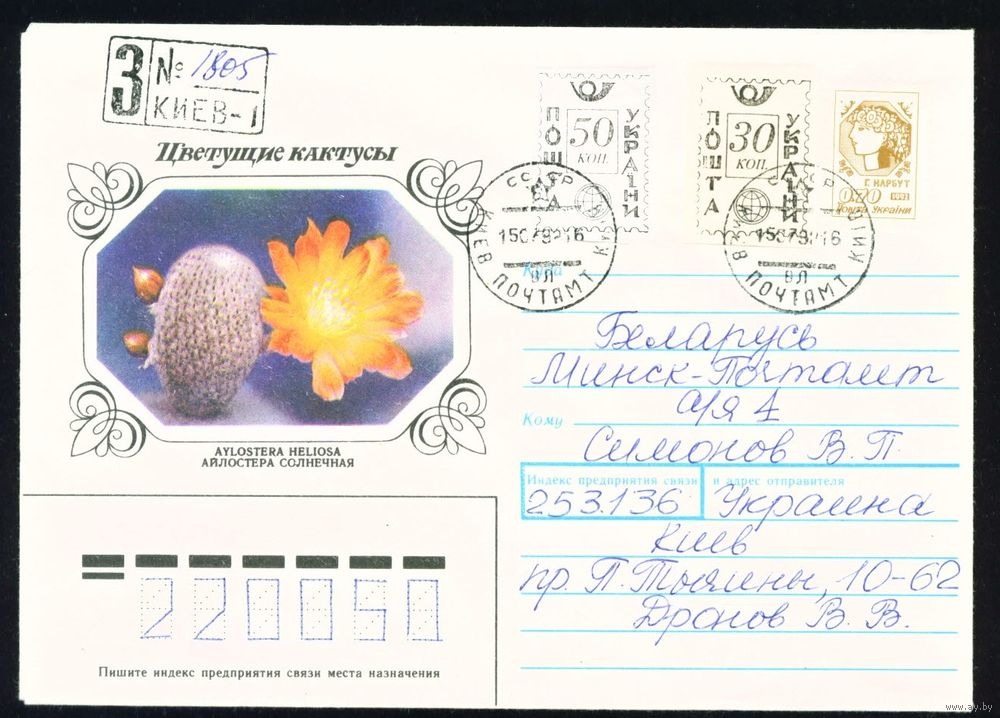 З № 1805
КИЕВ-1
Цветущие кактусы
AYLOSTERA HELIOSA
АЙЛОСТЕРА СОЛНЕЧНАЯ
ПОШТА 50 КОП. УКРАЇНИ
ПОШТА 30 КОП. УКРАЇНИ
Г. НАРБУТ
0,70 1992
Пошта України
СССР
КИЕВ ПОЧТАМТ КИЇВ
ВЛ
СССР
КИЕВ ПОЧТАМТ КИЇВ
ВЛ
Куда
Беларусь
Минск-Почтамт
а/я 1
Кому
Симонов В. П.
Индекс предприятия связи и адрес отправителя
253136 Украина
Киев
пр. П. Тычины, 10-62
Дронов В. В.
220050
Пишите индекс предприятия связи места назначения
www.ay.by